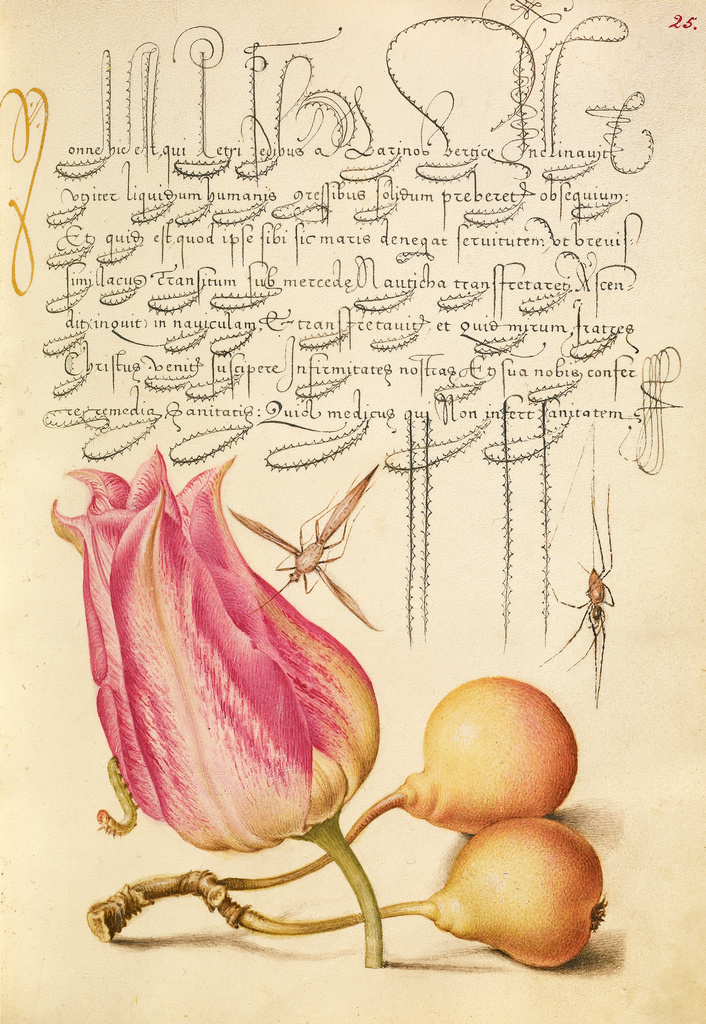 25.
Nonne hic est, qui Petri pedibus a Marinoo vertice Inclinavit
vt iter liquidum humanis gressibus solidum preberet obsequium:
Et quid est, quod ipse sibi sic maris denegat servitutem, vt brevis-
simi lacus transitum sub mercede Nauticha transfretaret, Ascen-
dit (inquit) in naviculam, & transfretavit, et quid mirum, fratres
Christus venit suscipere Infirmitates nostras, Et sua nobis confer
re remedia, Sanitatis: Quia medicus qui Non infert sanitatem